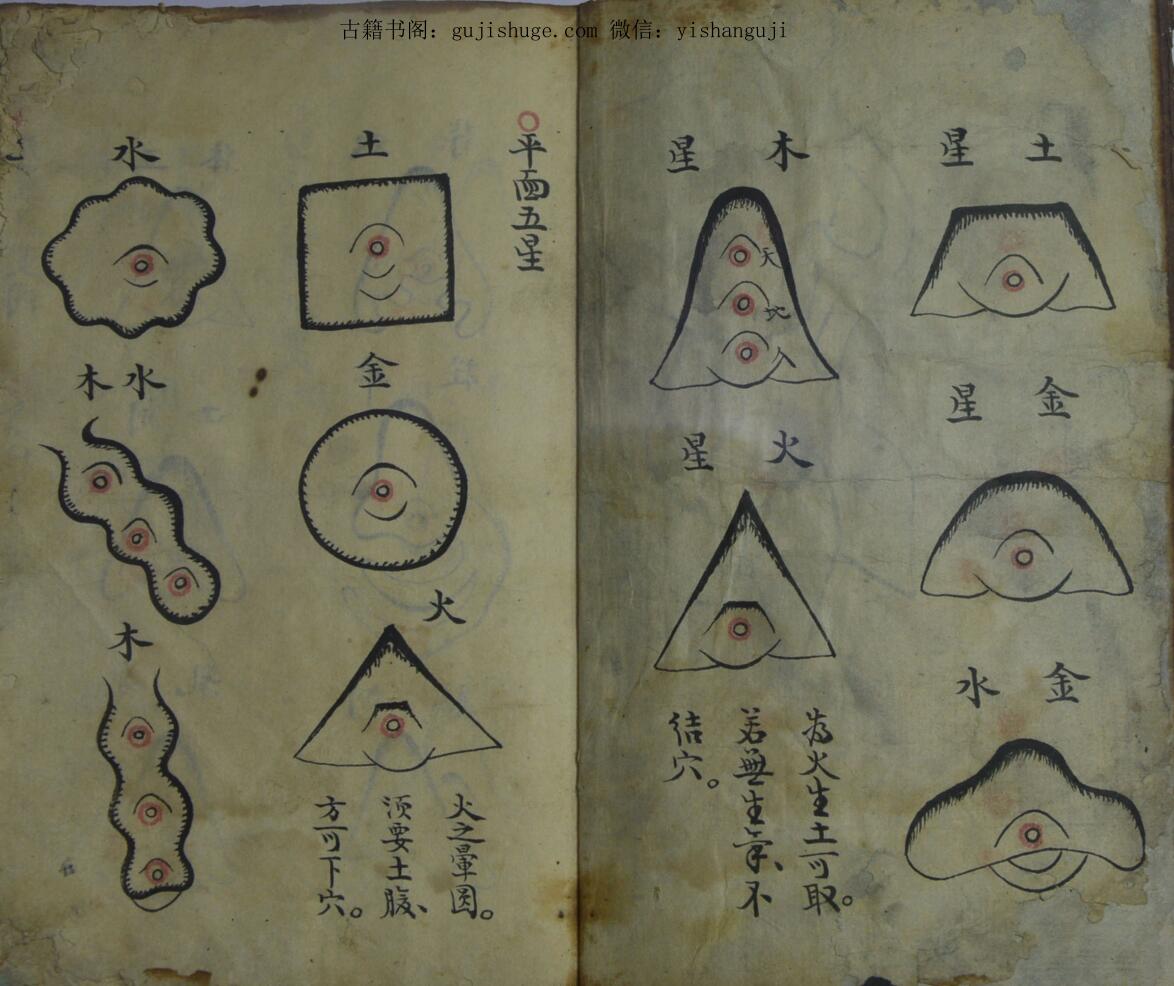 古籍书阁：gujishuge.com 微信：yishanguji
土星
金星
金水
木星
天
地
人
火星
為火生土可取。
若無生氣、不
结穴。
平面五星
土
金
火
火之暈圆。
须要土腹、
方可下穴。
水
水木
木